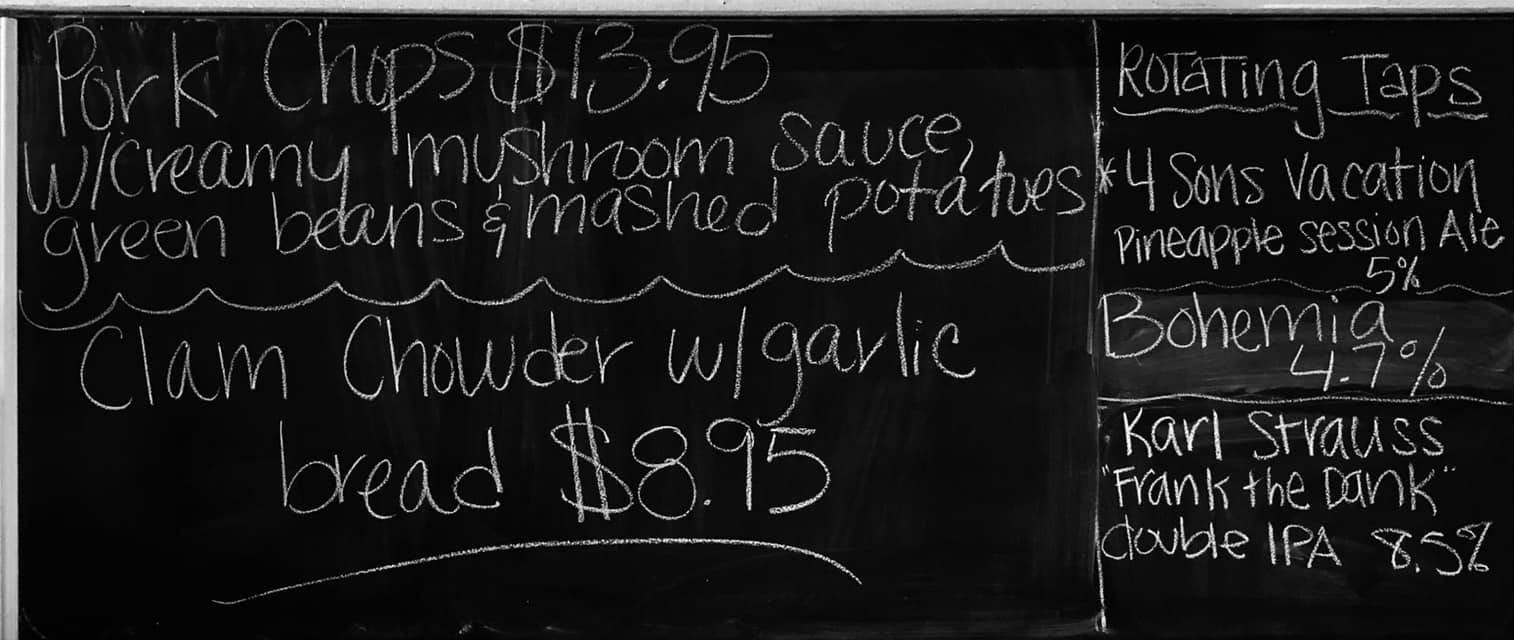 Pork Chops $13.95
w/creamy mushroom sauce,
green beans & mashed potatoes
Clam Chowder w/garlic
bread $8.95
Rotating Taps
*4 Sons Vacation
Pineapple session Ale
5%
Bohemia
4.7%
Karl Strauss
"Frank the Dank"
double IPA 8.5%